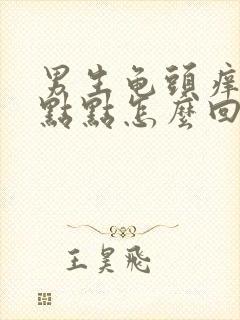 男生龟頭痒
點點怎麼回
王昊飛